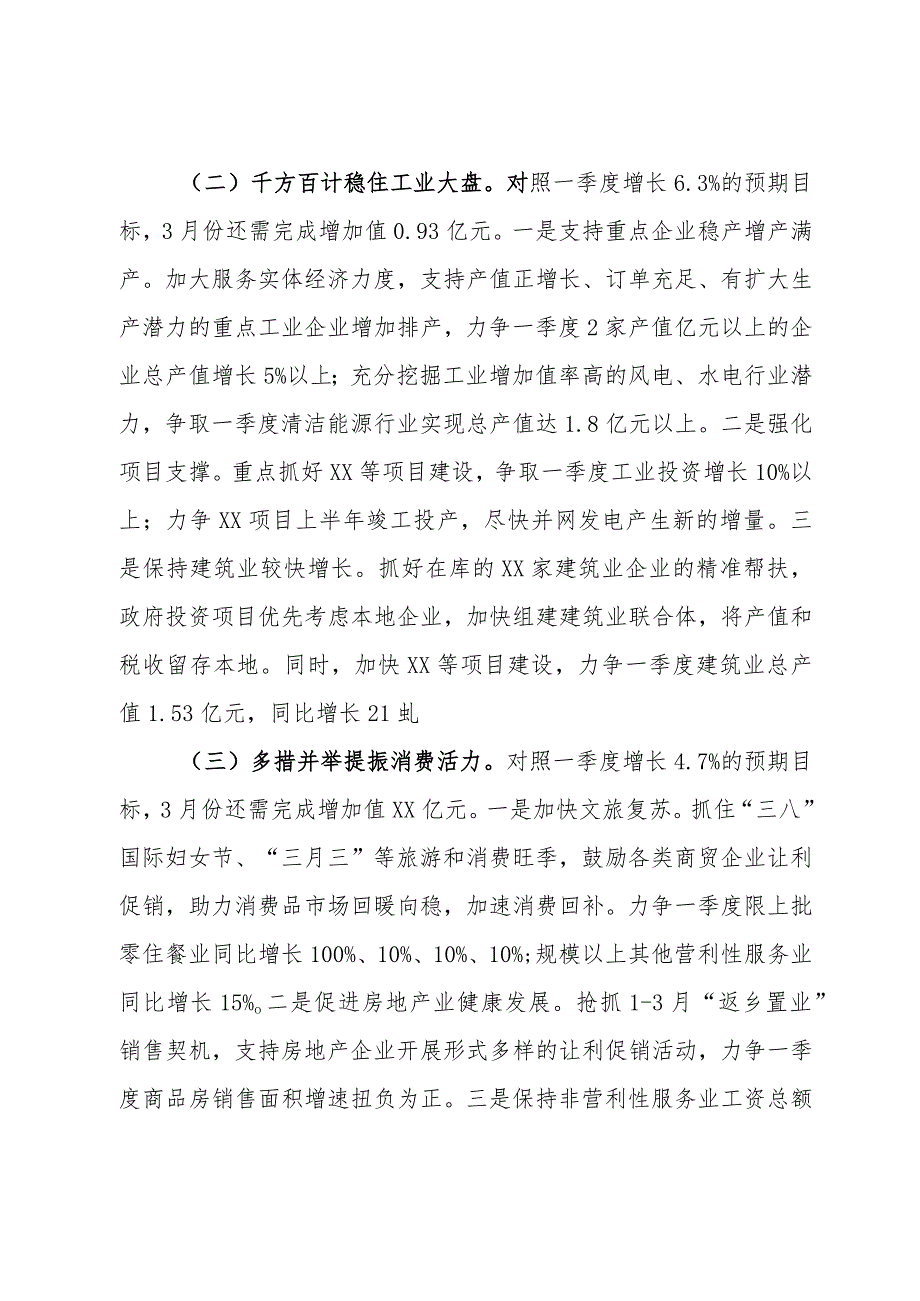 （二）千方百计稳住工业大盘。对照一季度增长6.3%的预期目
标，3月份还需完成增加值0.93亿元。一是支持重点企业稳产增产满
产。加大服务实体经济力度，支持产值正增长、订单充足、有扩大生
产潜力的重点工业企业增加排产，力争一季度2家产值亿元以上的企
业总产值增长5%以上；充分挖掘工业增加值率高的风电、水电行业潜
力，争取一季度清洁能源行业实现总产值达1.8亿元以上。二是强化
项目支撑。重点抓好XX等项目建设，争取一季度工业投资增长10%以
上；力争XX项目上半年竣工投产，尽快并网发电产生新的增量。三
是保持建筑业较快增长。抓好在库的XX家建筑业企业的精准帮扶，
政府投资项目优先考虑本地企业，加快组建建筑业联合体，将产值和
税收留存本地。同时，加快XX等项目建设，力争一季度建筑业总产
值1.53亿元，同比增长21虬
（三）多措并举提振消费活力。对照一季度增长4.7%的预期目
标，3月份还需完成增加值XX亿元。一是加快文旅复苏。抓住“三八”
国际妇女节、“三月三”等旅游和消费旺季，鼓励各类商贸企业让利
促销，助力消费品市场回暖向稳，加速消费回补。力争一季度限上批
零住餐业同比增长100%、10%、10%、10%;规模以上其他营利性服务业
同比增长15%。二是促进房地产业健康发展。抢抓1-3月“返乡置业”
销售契机，支持房地产企业开展形式多样的让利促销活动，力争一季
度商品房销售面积增速扭负为正。三是保持非营利性服务业工资总额